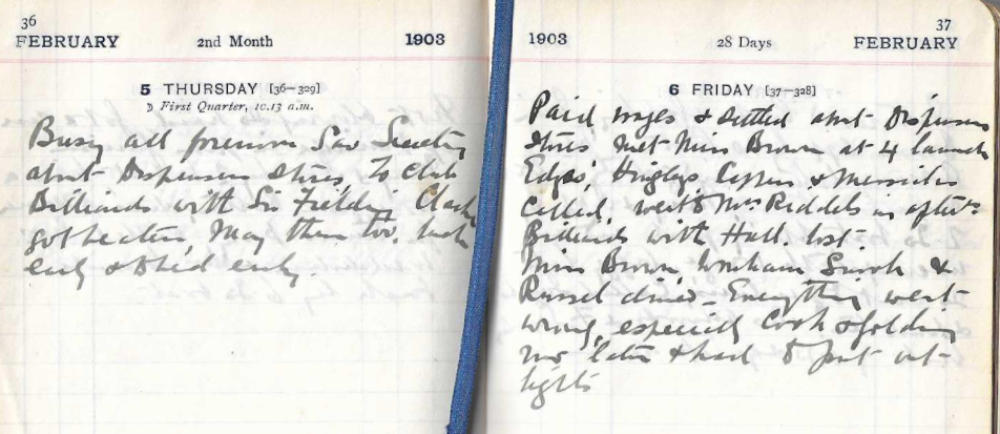 36
FEBRUARY 2nd Month 1903
5 THURSDAY [36–329]
☽ First Quarter, 10.13 a.m.
Busy all forenoon Saw Secretary
abnt Dispensers Stores, To Club
Billiards with Sir Fielding Clark
got beaten, May there too. back
early & to bed early.
1903 28 Days 37
FEBRUARY
6 FRIDAY [37–328]
Paid wages & settled abnt Dispensers
Stores met Miss Brown at 4 launch
&
called, went to Mrs Riddels in aftn
Billiards with Hall. lost–
Miss Brown &
Russel dined – Everything went
wrong, especially Cook &
later & had to put out
lights